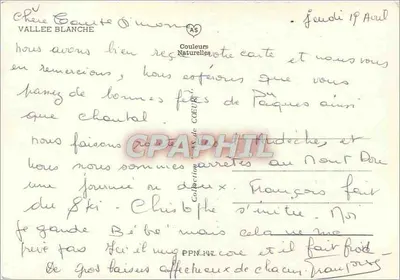 Chère Tante Simone
Jeudi 19 Avril
VALLEE BLANCHE
AS
Couleurs
Naturelles
nous avons bien reçu votre carte et nous vous
en remercions, nous espérons que vous
passez de bonnes fêtes de Pâques ainsi
que Chantal.
nous faisons
nous nous sommes arrêtés au Mont Dore
une journée ou deux. François fait
du Ski. Christophe s'initie. Moi
je garde Bébé mais cela ne me
pèse pas ici il encore et il fait froid
De Gros baisers affectueux de chacun
CPAPHIL